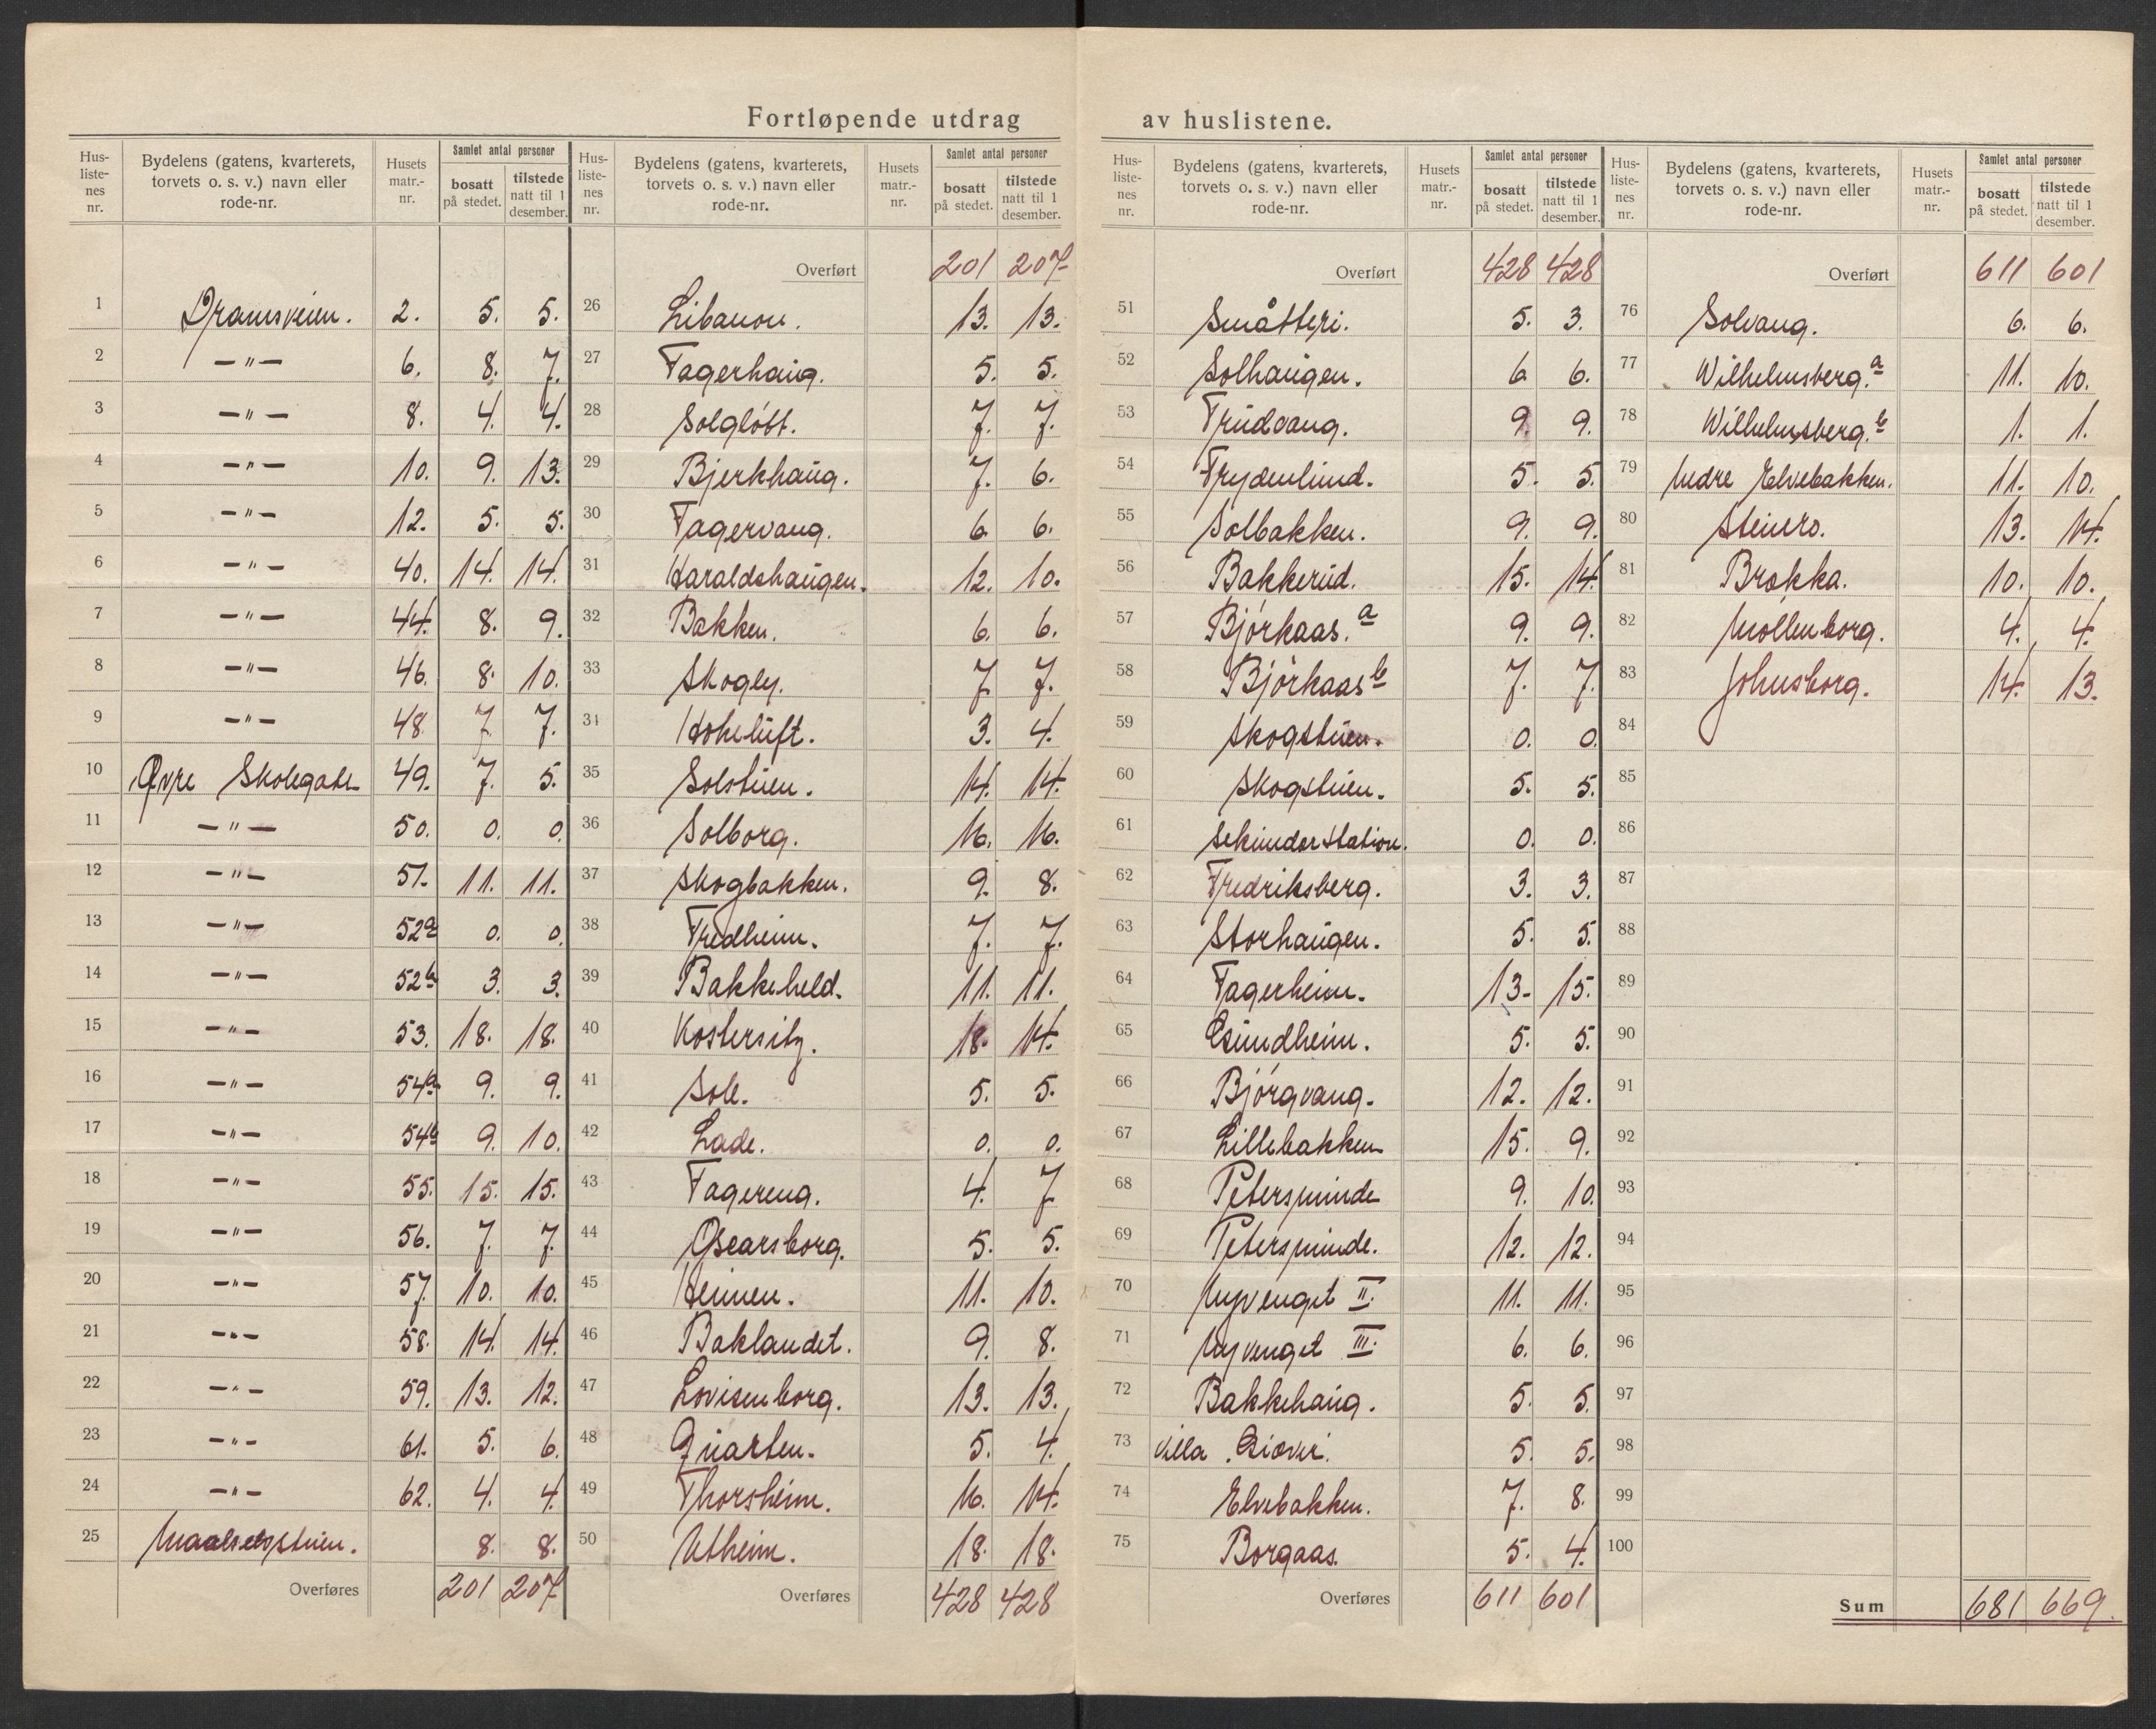 Fortløpende utdrag av huslistene.
Hus-listenes nr. | Bydelens (gatens, kvarterets, torvets o. s. v.) navn eller rode-nr. | Husets matr.-nr. | Samlet antal personer | bosatt på stedet. | tilstede natt til 1 desember.
1 Dramsveien. 2. 5. 5.
2 —"— 6. 8. 7.
3 —"— 8. 4. 4.
4 —"— 10. 9. 13.
5 —"— 12. 5. 5.
6 —"— 40. 14. 14.
7 —"— 44. 8. 9.
8 —"— 46. 8. 10.
9 —"— 48. 7. 7.
10 Øvre Skolegate 49. 7. 5.
11 —"— 50. 0. 0.
12 —"— 51. 11. 11.
13 —"— 52a 0. 0.
14 —"— 52b 3. 3.
15 —"— 53. 18. 18.
16 —"— 54a 9. 9.
17 —"— 54b 9. 10.
18 —"— 55. 15. 15.
19 —"— 56. 7. 7.
20 —"— 57. 10. 10.
21 —"— 58. 14. 14.
22 —"— 59. 13. 12.
23 —"— 61. 5. 6.
24 —"— 62. 4. 4.
25 Maalselvstuen. 8. 8.
Overføres 201 207
Hus-listenes nr. | Bydelens (gatens, kvarterets, torvets o. s. v.) navn eller rode-nr. | Husets matr.-nr. | Samlet antal personer | bosatt på stedet. | tilstede natt til 1 desember.
Overført 201 207
26 Libanon. 13. 13.
27 Fagerhaug. 5. 5.
28 Solgløtt. 7. 7.
29 Bjerkhaug. 7. 6.
30 Fagervang. 6. 6.
31 Haraldshaugen. 12. 10.
32 Bakken. 6. 6.
33 Skogly. 7. 7.
34 Hoheluft. 3. 4.
35 Solstuen. 14. 14.
36 Solborg. 16. 16.
37 Skogbakken. 9. 8.
38 Fredheim. 7. 7.
39 Bakkeheld. 11. 11.
40 Kostersitz. 18. 14.
41 Sole. 5. 5.
42 Lade. 0. 0.
43 Fagereng. 4. 7
44 Oscarsborg. 5. 5.
45 Heimen. 11. 10.
46 Baklandet. 9. 8.
47 Lovisenborg. 13. 13.
48 Quarten. 5. 4.
49 Thorsheim. 16. 14.
50 Utheim. 18. 18.
Overføres 428 428
Hus-listenes nr. | Bydelens (gatens, kvarterets, torvets o. s. v.) navn eller rode-nr. | Husets matr.-nr. | Samlet antal personer | bosatt på stedet. | tilstede natt til 1 desember.
Overført 428 428
51 Småtteri. 5. 3.
52 Solhaugen. 6 6.
53 Trudvang. 9. 9.
54 Frydenlund. 5. 5.
55 Solbakken. 9. 9.
56 Bakkerud. 15. 14.
57 Bjørkaas. a 9. 9.
58 Bjørkaas b 7. 7.
59 Skogstuen. 0. 0.
60 Skogstuen. 5. 5.
61 Sekundær station. 0. 0.
62 Fredriksberg. 3. 3.
63 Storhaugen. 5. 5.
64 Fagerheim. 13. 15.
65 Gsundheim. 5. 5.
66 Bjørgvang. 12. 12.
67 Lillebakken 15. 9.
68 Petersminde 9. 10.
69 Petersminde. 12. 12.
70 Myrvenget II. 11. 11.
71 Myrvenget III. 6. 6.
72 Bakkehaug. 5. 5.
73 Villa 5. 5.
74 Elvebakken. 7. 8.
75 Borgaas. 5. 4.
Overføres 611 601
Hus-listenes nr. | Bydelens (gatens, kvarterets, torvets o. s. v.) navn eller rode-nr. | Husets matr.-nr. | Samlet antal personer | bosatt på stedet. | tilstede natt til 1 desember.
Overført 611 601
76 Solvang. 6. 6.
77 Wilhelmsberg. a 11. 10.
78 Wilhelmsberg. b 1. 1.
79 Nedre Elvebakken. 11. 10.
80 Steinro. 13. 14.
81 Brækka. 10. 10.
82 Møllenborg. 4. 4.
83 Johnsborg. 14. 13.
84
85
86
87
88
89
90
91
92
93
94
95
96
97
98
99
100
Sum 681 669.